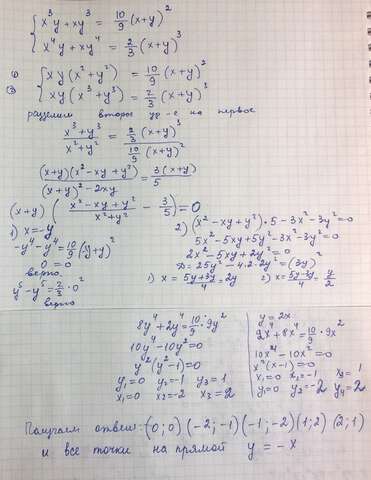 { x³y + xy³ = 10/9 (x+y)²
x⁴y + xy⁴ = 2/3 (x+y)³
① { xy(x²+y²) = 10/9 (x+y)²
② xy(x³+y³) = 2/3 (x+y)³
разделим второе ур-е на первое
(x³+y³)/(x²+y²) = (2/3 (x+y)³)/(10/9 (x+y)²)
((x+y)(x²-xy+y²))/((x+y)²-2xy) = 3(x+y)/5
(x+y) ( (x²-xy+y²)/(x²+y²) - 3/5 ) = 0
1) x=-y
-y⁴-y⁴ = 10/9 (-y+y)²
0 = 0
верно
y⁵-y⁵ = 2/3·0²
верно
2) (x²-xy+y²)·5-3x²-3y²=0
5x²-5xy+5y²-3x²-3y²=0
2x²-5xy+2y²=0
D=25y²-4·2·2y²=(3y)²
1) x = (5y+3y)/4 = 2y 2) x = (5y-3y)/4 = y/2
8y⁴+2y⁴ = 10/9·9y²
10y⁴-10y²=0
y²(y²-1)=0
y₁=0 y₂=-1 y₃=1
x₁=0 x₂=-2 x₃=2
y=2x
2x⁴+8x⁴ = 10/9·9x²
10x⁴-10x²=0
x²(x-1)=0
x₁=0 x₂=-1 x₃=1
y₁=0 y₂=-2 y₂=2
Получаем ответ: (0;0) (-2;-1) (-1;-2) (1;2) (2;1)
и все точки на прямой y = -x